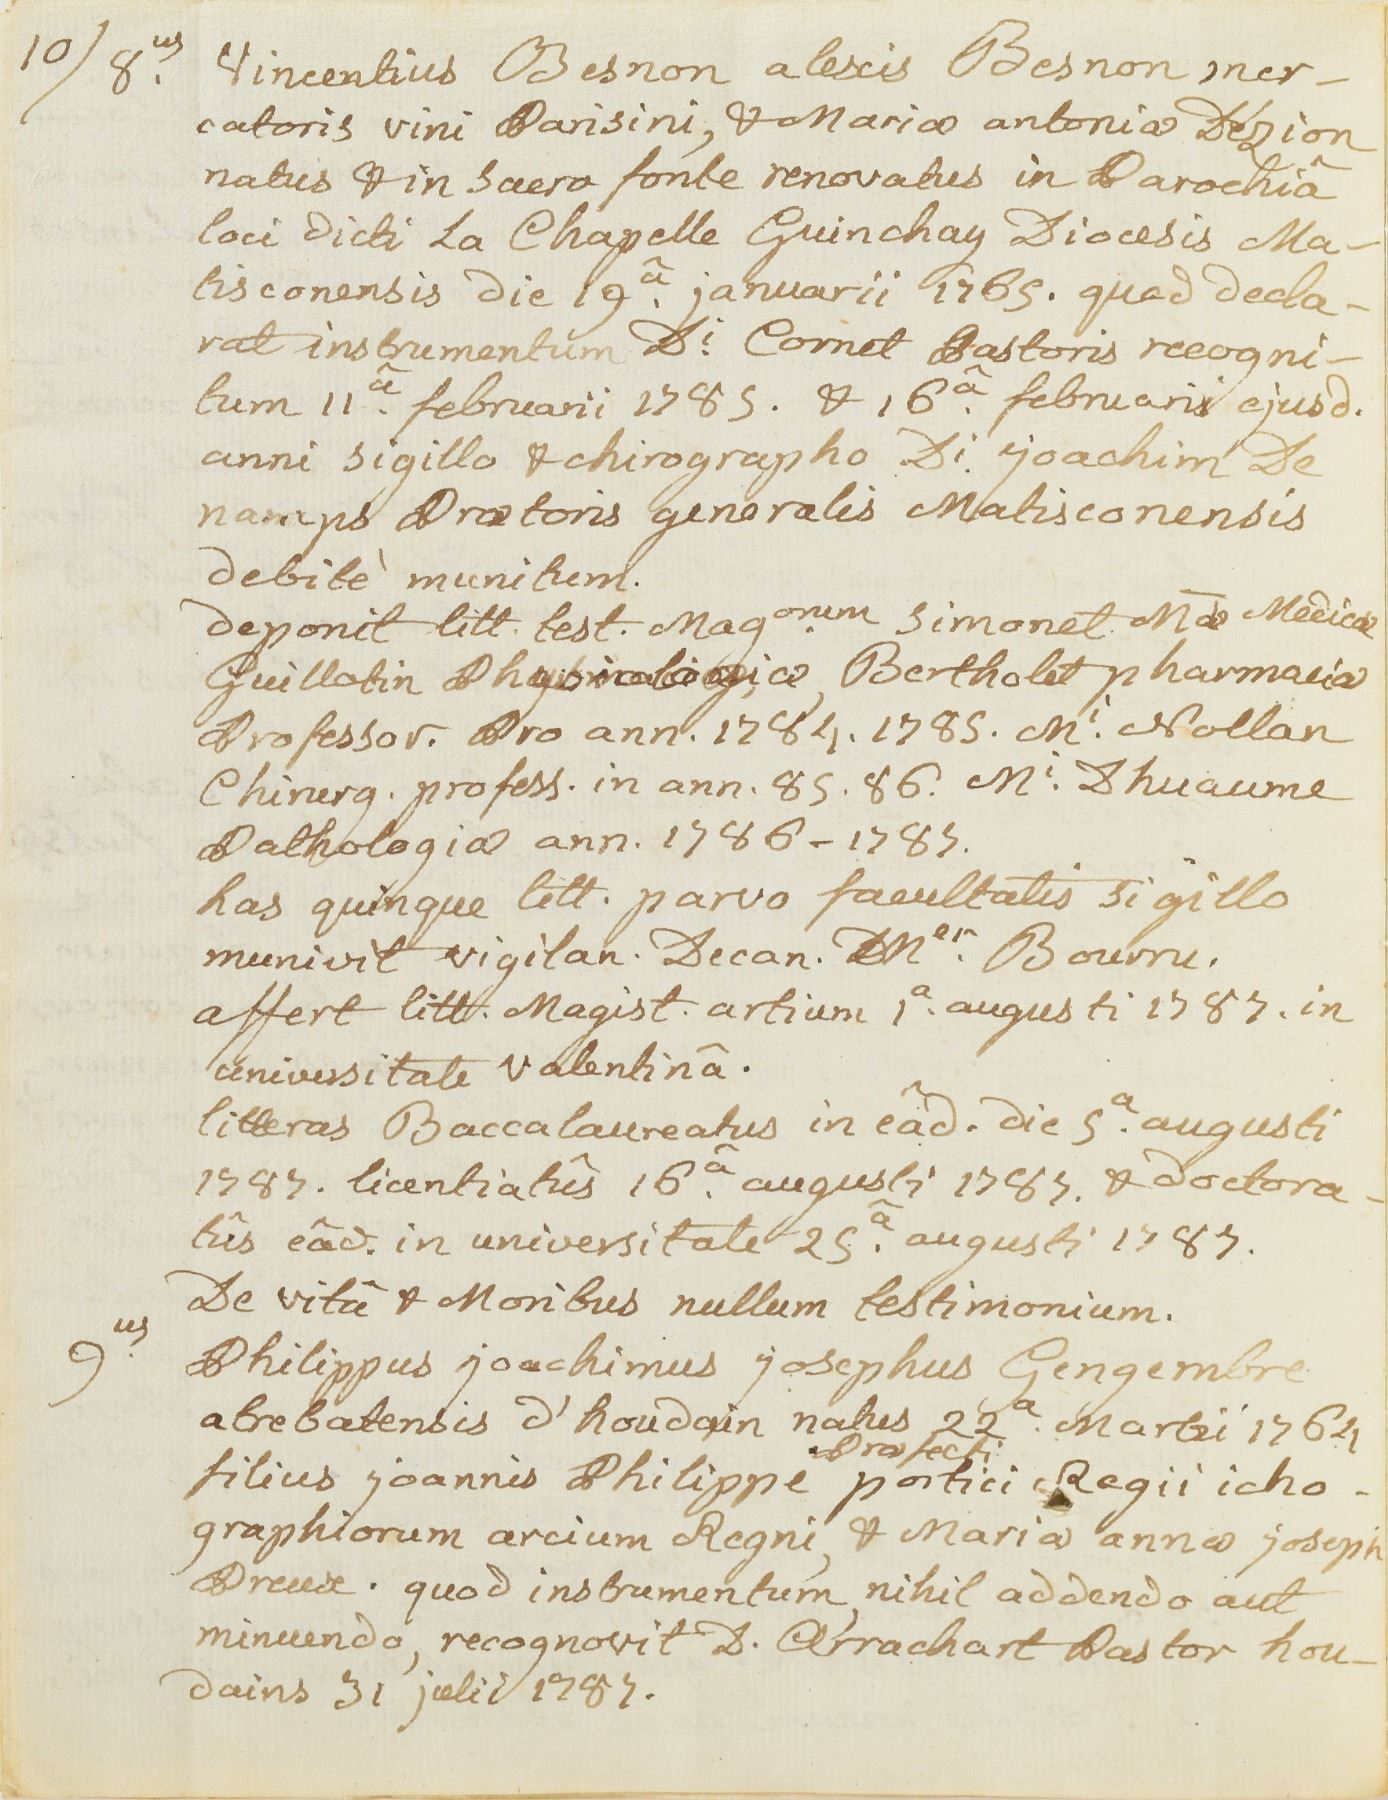 10/ 8.us Vincentius Besnon alexis Besnon mer-
catoris vini Parisini, & Mariæ antoniæ Dézion
natus & in Sacro fonte renovatus in Parochiâ
loci dicti La Chapelle Guinchay Diocesis Ma-
tisconensis die 19.â januarii 1765. quod decla-
rat instrumentum D.i Cornet Pastoris recogni-
tum 11.â februarii 1785. & 16.â februarii ejusd.
anni sigillo & chirographo D.i joachim De
namps Prætoris generalis Matisconensis
debitè munitum.
deponit litt. test. Mag.orum Simonet Mæ Medicæ
Guillotin Physiologiæ, Bertholet pharmaciæ
Professor. Pro ann. 1784. 1785. M.i Nollan
Chirurg. profess. in ann. 85. 86. M.i Dhuaume
Pathologiæ ann. 1786-1787.
has quinque litt. parvo facultatis sigillo
munivit vigilan. Decan. M.er Bourru.
affert litt. Magist. artium 1.a augusti 1787. in
universitate Valentinâ.
litteras Baccalaureatus in eâd. die 5.a augusti
1787. licentiatûs 16.â augusti 1787. & doctora-
tûs eâd. in universitate 25.â augusti 1787.
De vitâ & Moribus nullum testimonium.
9.us Philippus joachimus josephus Gengembre
atrebatensis d'houdain natus 22.a Martii 1764
Præfecti
filius joannis Philippe portici Regii icho-
graphiorum arcium Regni, & Mariæ annæ joseph
Preux. quod instrumentum, nihil addendo aut
minuendo, recognovit D. Errachart Pastor hou-
dains 31 julii 1787.